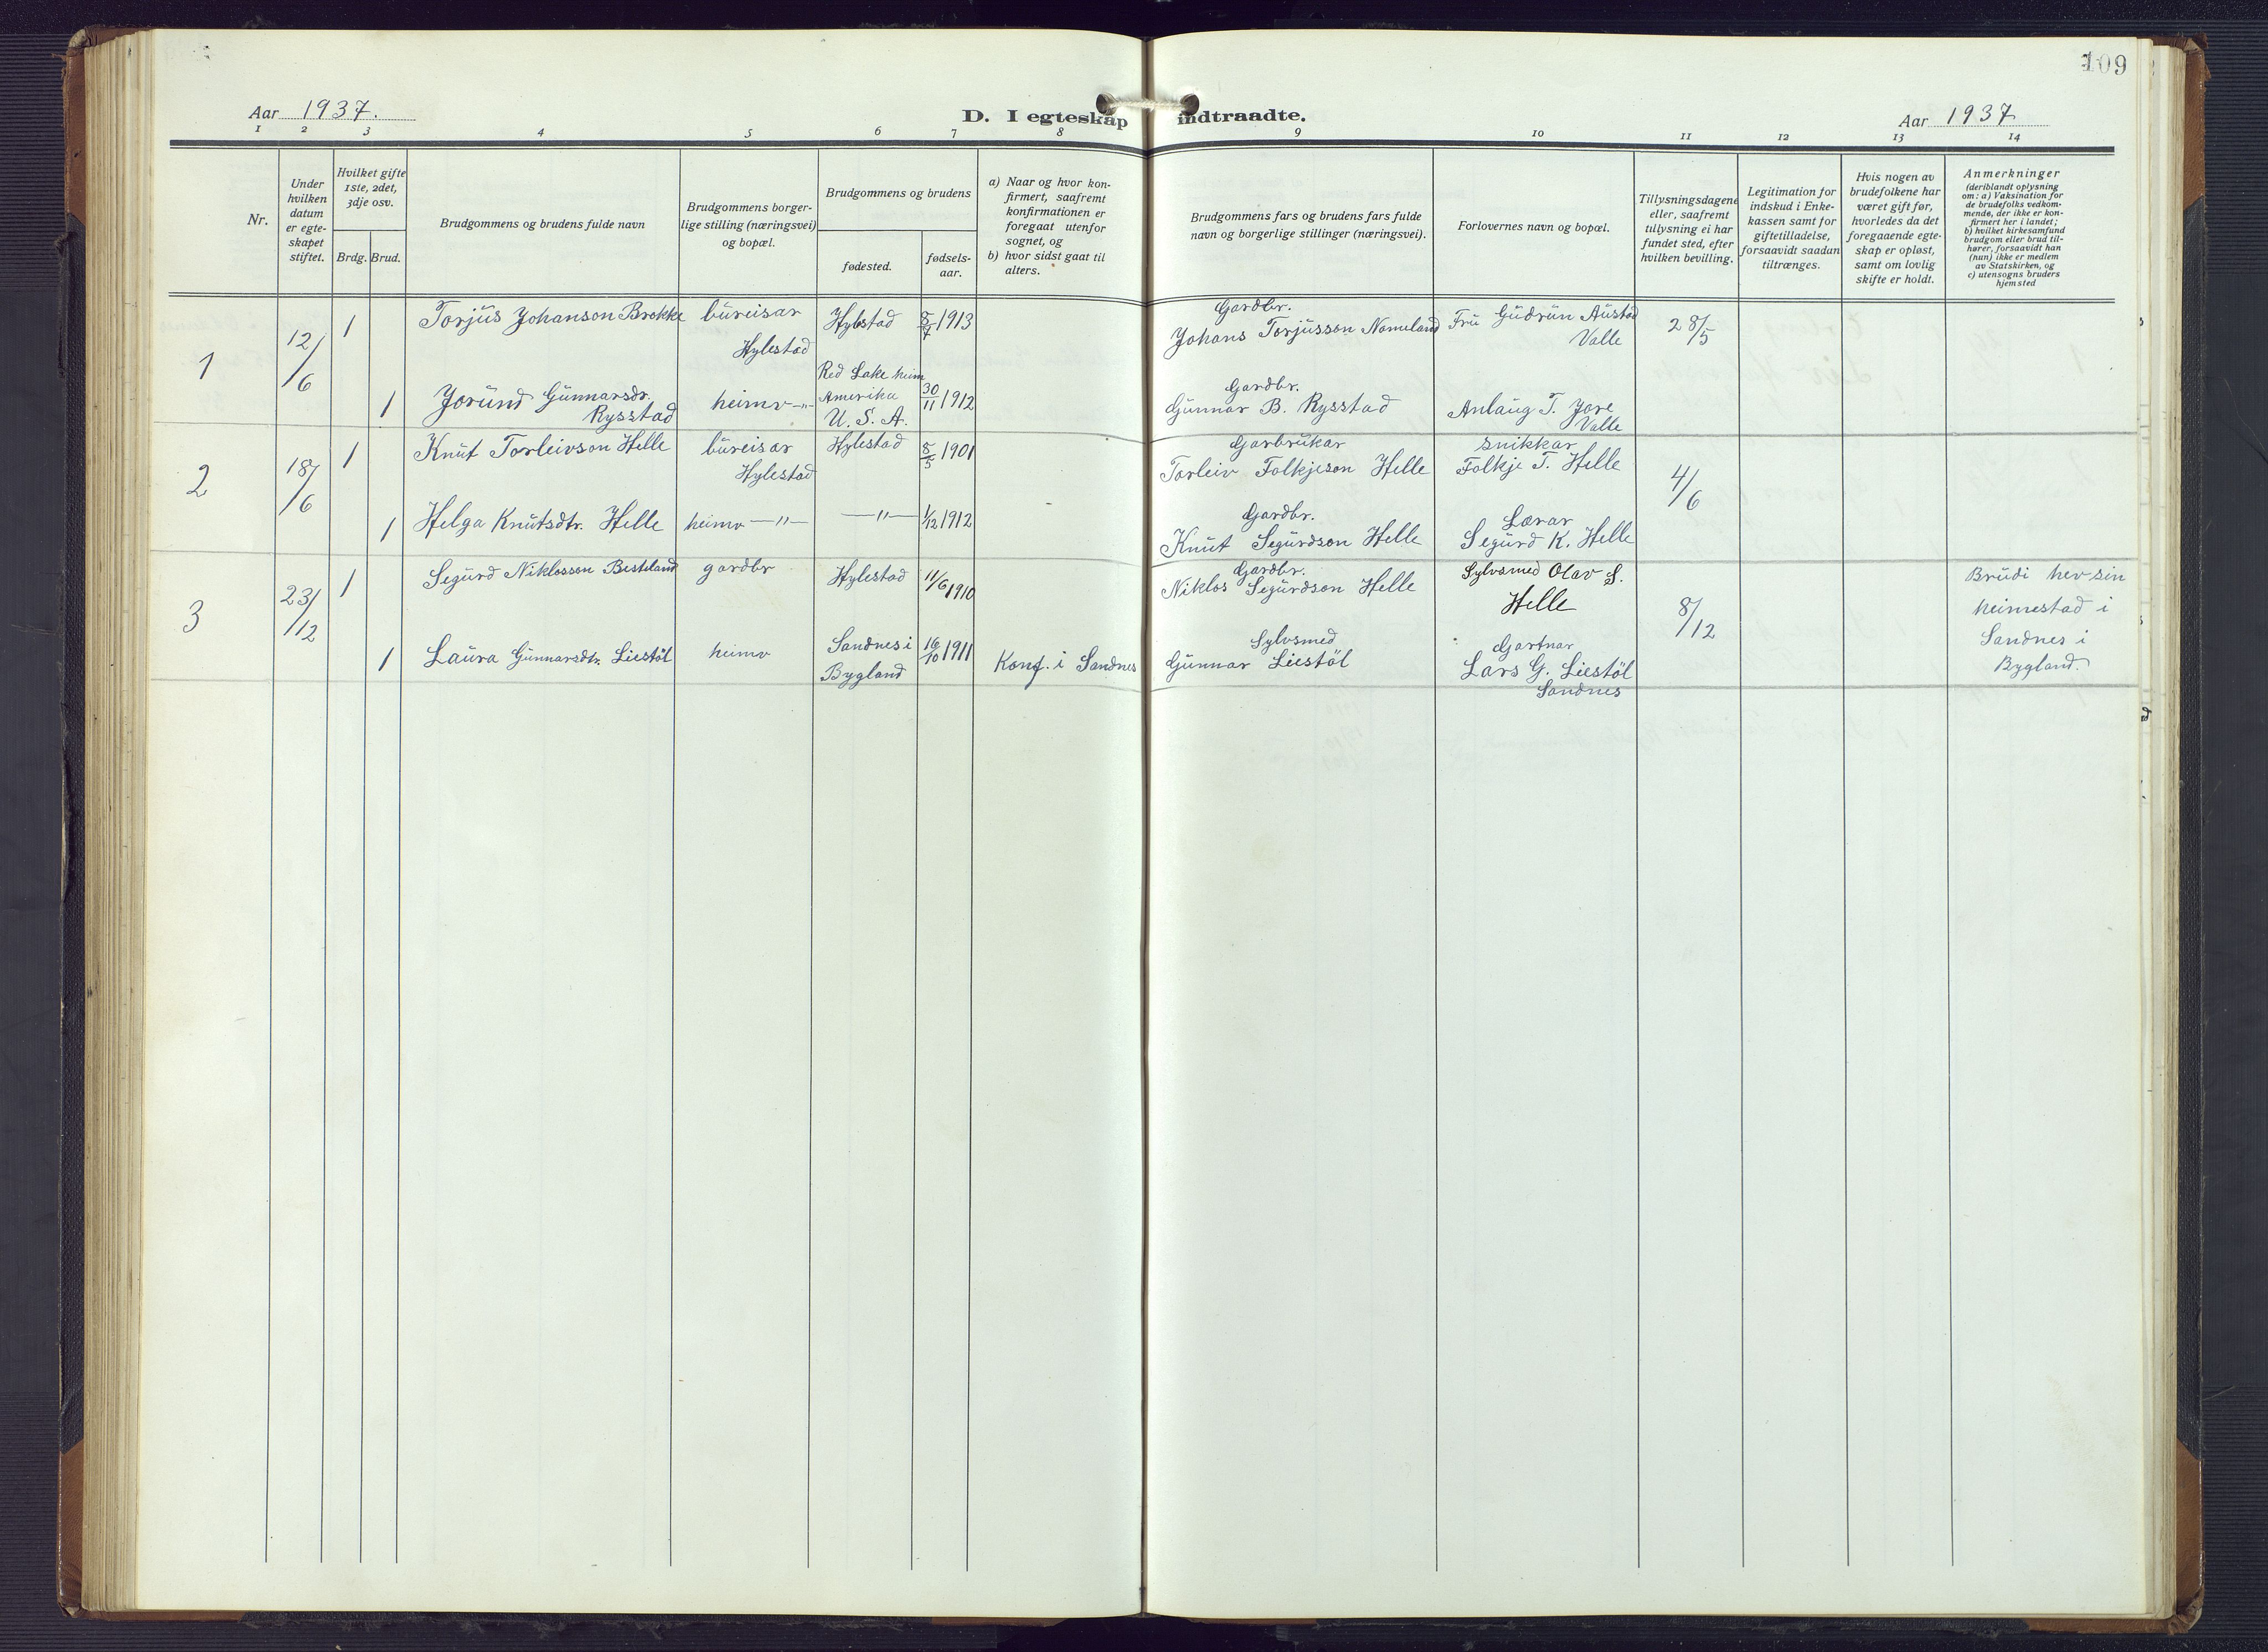 109
Aar 1937.
D. I egteskap indtraadte.
Aar 1937
1 2 3 4 5 6 7 8 9 10 11 12 13 14
Nr.
Under
hvilken
datum
er egte-
skapet
stiftet.
Hvilket gifte
1ste, 2det,
3dje osv.
Brdg. Brud.
Brudgommens og brudens fulde navn
Brudgommens borger-
lige stilling (næringsvei)
og bopæl.
Brudgommens og brudens
fødested.
fødsels-
aar.
a) Naar og hvor kon-
firmert, saafremt
konfirmationen er
foregaat utenfor
sognet, og
b) hvor sidst gaat til
alters.
Brudgommens fars og brudens fars fulde
navn og borgerlige stillinger (næringsvei).
Forlovernes navn og bopæl.
Tillysningsdagene
eller, saafremt
tillysning ei har
fundet sted, efter
hvilken bevilling.
Legitimation for
indskud i Enke-
kassen samt for
giftetilladelse,
forsaavidt saadun
tiltrænges.
Hvis nogen av
brudefolkene har
været gift før,
hvorledes da det
foregaaende egte-
skap er opløst,
samt om lovlig
skifte er holdt.
Anmerkninger
(deriblandt oplysning
om: a) Vaksination for
de brudefolks vedkom-
mende, der ikke er kon-
firmert her i landet;
b) hvilket kirkesamfund
brudgom eller brud til-
hører, forsaavidt han
(hun) ikke er medlem
av Statskirken, og
c) utensogns bruders
hjemsted
1
12/6
1
Torjus Johanson Brokke
bureisar
Hylestad
Hylestad
8/7 1913
Gardbr.
Johans Torjusson Nomeland
Fru Gudrun Austad
Valle
28/5
1
Jorund Gunnarsdr.
Rysstad
heimv -"-
Red Lake heim
Amerika
U. S. A.
30/11 1912
Gardbr.
Gunnar B. Rysstad
Anlaug T. Jore
Valle
2
18/6
1
Knut Torleivson Helle
bureisar
Hylestad
Hylestad
8/5 1901
Garbrukar
Torleiv Folkjeson Helle
Snikkar
Folkje T. Helle
4/6
1
Helga Knutsdtr. Helle
heimv -"-
-"-
1/12 1912
Gardbr.
Knut Segurdson Helle
Lærar
Segurd K. Helle
3
23/12
1
Segurd Niklosson Besteland
gardbr
Hylestad
11/6 1910
Gardbr.
Niklos Segurdson Helle
Sylvsmed Olav S.
Helle
8/12
Brudi hev sin
heimestad i
Sandnes i
Bygland.
1
Laura Gunnarsdtr. Liestöl
heimv
Sandnes i
Bygland
16/10 1911
Konf. i Sandnes
Sylvsmed
Gunnar Liestöl
Gartnar
Lars G. Liestöl
Sandnes